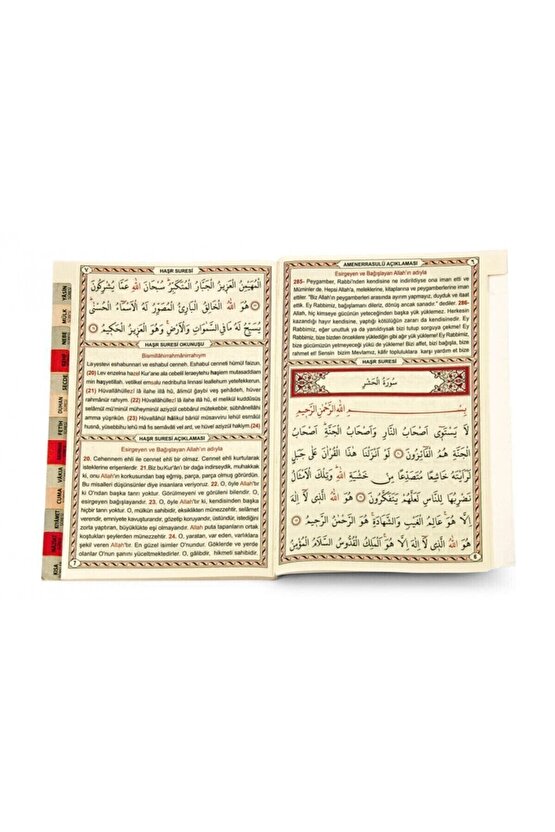 AMENERRASULÜ AÇIKLAMASI
٦
Esirgeyen ve Bağışlayan Allah'ın adıyla
285- Peygamber, Rabbi'nden kendisine ne indirildiyse ona iman etti ve
Müminler de. Hepsi Allah'a, meleklerine, kitaplarına ve peygamberlerine iman
ettiler. "Biz Allah'ın peygamberleri arasında ayırım yapmayız, duyduk ve itaat
ettik. Ey Rabbimiz, bağışlamanı dileriz, dönüş ancak sanadır." dediler. 286-
Allah, hiç kimseye gücünün yeteceğinden başka yük yüklemez. Herkesin
kazandığı hayır kendisine, yaptığı kötülüğün zararı da kendisinedir. Ey
Rabbimiz, eğer unuttuk ya da yanıldıysak bizi tutup sorguya çekme! Ey
Rabbimiz, bize bizden öncekilere yüklediğin gibi ağır yük yükleme! Ey Rabbimiz,
bize gücümüzün yetmeyeceği yükü de yükleme! Bizi affet, bizi bağışla, bize
rahmet et! Sensin bizim Mevlamız, kâfir topluluklara karşı yardım et bize
HAŞR SURESİ
سُورَةُ الْحَشْرِ
بِسْــمِ اللهِ الرَّحْمٰنِ الرَّحِيمِ
لَا يَسْتَوِى اَصْحَابُ النَّارِ وَاَصْحَابُ الْجَنَّةِ اَصْحَابُ
الْجَنَّةِ هُمُ الْفَٓائِزُونَ لَوْ اَنْزَلْنَا هٰذَا الْقُرْاٰنَ عَلٰى جَبَلٍ
لَرَاَيْتَهُ خَاشِعًا مُتَصَدِّعًا مِنْ خَشْيَةِ اللهِ وَتِلْكَ الْاَمْثَالُ
نَضْرِبُهَا لِلنَّاسِ لَعَلَّهُمْ يَتَفَكَّرُونَ هُوَ اللهُ الَّذِى لَٓا اِلٰهَ
اِلَّا هُوَ عَالِمُ الْغَيْبِ وَالشَّهَادَةِ هُوَ الرَّحْمٰنُ الرَّحِيمُ
هُوَ اللهُ الَّذِى لَٓا اِلٰهَ اِلَّا هُوَ اَلْمَلِكُ الْقُدُّوسُ السَّلَامُ الْمُؤْمِنُ
6
HAŞR SURESİ
٧
الْمُهَيْمِنُ الْعَزِيزُ الْجَبَّارُ الْمُتَكَبِّرُ سُبْحَانَ اللهِ عَمَّا يُشْرِكُونَ
هُوَ اللهُ الْخَالِقُ الْبَارِئُ الْمُصَوِّرُ لَهُ الْاَسْمَٓاءُ الْحُسْنٰى
يُسَبِّحُ لَهُ مَا فِى السَّمٰوَاتِ وَالْاَرْضِ وَهُوَ الْعَزِيزُ الْحَكِيمُ
HAŞR SURESİ OKUNUŞU
Bismillâhirrahmânirrahıym
Lâ yestevi eshabunnari ve eshabul cenneh. Eshabul cenneti hümül faizun.
(20) Lev enzelna hazel Kur'ane ala cebelil leraeytehu haşiem mutasaddiam
min haşyetillah, vetilkel emsalu nedribuha linnasi leallehum yetefekkerun.
(21) Hüvallâhüllezî lâ ilahe illâ hû, âlimül ğaybi veş şehâdeh, hüver
rahmânür rahıym. (22) Hüvallâhüllezî lâ ilahe illâ hû, el melikül kuddûsüs
selâmül mü'minül müheyminül azizyül cebbârul mütekebbir, sübhânellâhi
amma yüşrikûn. (23) Hüvallâhül hâlikul bârıül müsavviru lehül esmâül
husnâ, yüsebbihu lehû mâ fis semâvâti vel ard, ve hüvel azizyül hakiym.(24)
HAŞR SURESİ AÇIKLAMASI
Esirgeyen ve Bağışlayan Allah'ın adıyla
20. Cehennem ehli ile cennet ehli bir olmaz. Cennet ehli kurtularak
isteklerine erişenlerdir. 21.Biz bu Kur'ân'ı bir dağa indirseydik, muhakkak
ki, onu Allah'ın korkusundan baş eğmiş, parça, parça olmuş görürdün.
Bu misalleri düşünsünler diye insanlara veriyoruz. 22. O, öyle Allah'tır
ki O'ndan başka tanrı yoktur. Görülmeyeni ve görüleni bilendir. O,
esirgeyen bağışlayandır. 23. O, öyle Allah'tır ki, kendisinden başka
hiçbir tanrı yoktur. O, mülkün sahibidir, eksiklikten münezzehtir, selâmet
verendir, emniyete kavuşturandır, gözetip koruyandır, üstündür, istediğini
zorla yaptıran, büyüklükte eşi olmayandır. Allah puta tapanların ortak
koştukları şeylerden münezzehtir. 24. O, yaratan, var eden, varlıklara
şekil veren Allah'tır. En güzel isimler O'nundur. Göklerde ve yerde
olanlar O'nun şanını yüceltmektedirler. O, gâlibdir, hikmeti sahibidir.
7
YASİN
MÜLK
NEBE
SECDE
DUHAN
FETİH
VAKIA
CUMA
KIYAMET
KISA